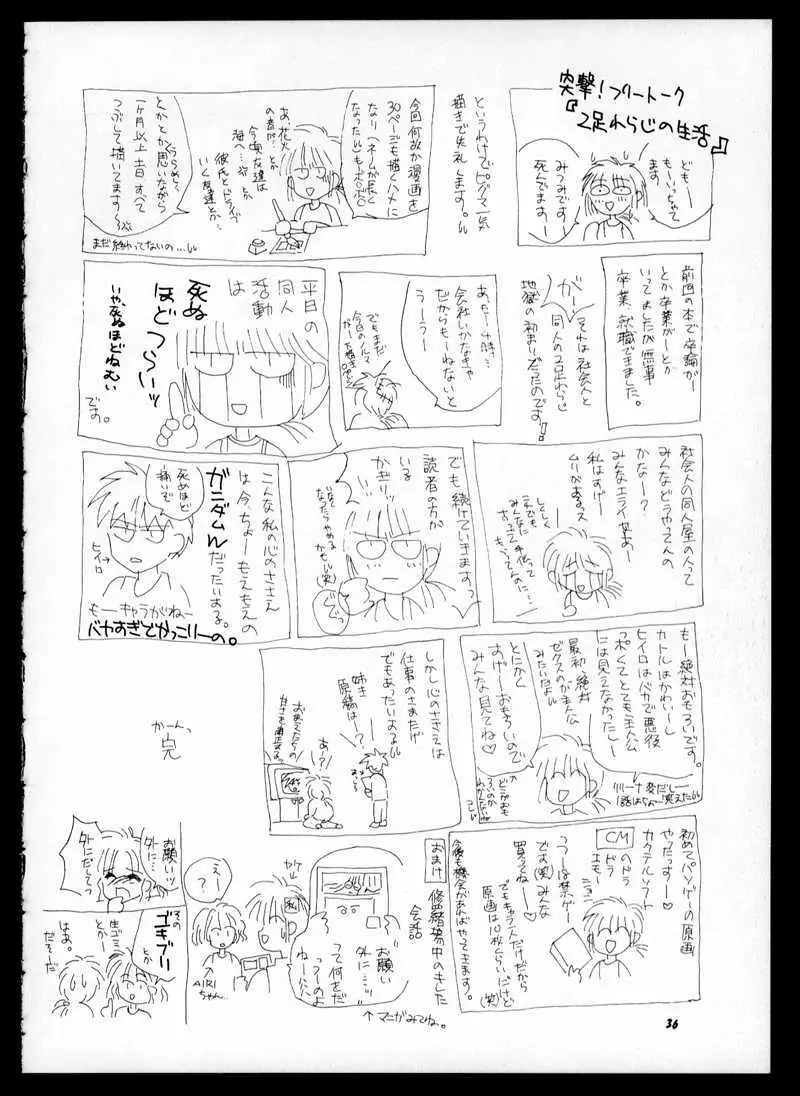 突撃!フリートーク
『2足わらじの生活』
ども──
もーいっちゃて
ます
みつみです
死んでます──
というわけでピグマ一気
描きで失礼します。
今回何故か漫画を
30ページも描くハメに
なり(ネームが長く
なった)もーボロボロ
あ、花火
の音が…とか
今頃友達は
海へ…とか
彼氏とドライブ
いく友達とか…
とかとか思いながら
一ヶ月以上土日すべて
つぶして描いてます〜
まだ終わってないの…
前回の本で卒論が──
とか卒業が──とか
いってましたが無事
卒業、就職できました。
が──っ
それは社会人と
同人の2足わらじ
地獄の初まりだったのです!
あ、もー4時…
会社いかなきゃ
だからもーねないと
う──う?
でもまだ
今日のノルマ
が
平日の
同人
活動
は
死ぬ
ほど
つらいッ
いや、死ぬほどねむい
です。
社会人の同人屋の人って
みんなどうやってんの
かなー?
みんなエライなあー
私はすげー
ムリがあるっス
しくしく
これでも
みんなに
手伝って
もらってんのに…
でも続けていきますっ
読者の方が
いる
かぎりッ
いなく
なったらやめる
かもしれん(笑)
ぐぐっ
こんな私の心のささえ
は今ちょーもえもえの
ガニダムW
だったりする。
死ぬほど
痛いぞ
ヒイロ
もーキャラがいねー
バヤすぎでかっこりーの。
もー絶対おもろいです。
カトルはかわいーし
ヒイロはバカで悪役
っぽくてとても主人公
には見えなかったし──
最初絶対
ゼクスのが主人公
みたいだよ
とにかく
すげ──おもろいので
みんな見てね♡
リリーナ変だし──
1話はちょー笑えた
どこがおも
ろいのか
わかんないね
しかし心のささえは
仕事のさまたげ
でもあったりする
姉キ
原稿は──
あ──?
かーんっ
完
初めてパソゲーの原画
やったっす──♡
カクテルソフト
CM
のドラ
ドラ
エモー
うつーは禁ゲー
です(笑)みんな
買ってね──♡
でもキャラ一人だけだから
原画は10枚くらいだけど(笑)
今後も機会があればやってきます。
おまけ
修羅緒場中のきした
会話
お願い
外に…ッ
って何をだ
ってーのよ
ねー
私
えー
?
AIRI
ちゃん
↑マニがみてね。
お願いッ
外に…
外にだしてっ
その
ゴキブリー
とか
生ゴミ
とかー
はぁ。
だそーだ
36